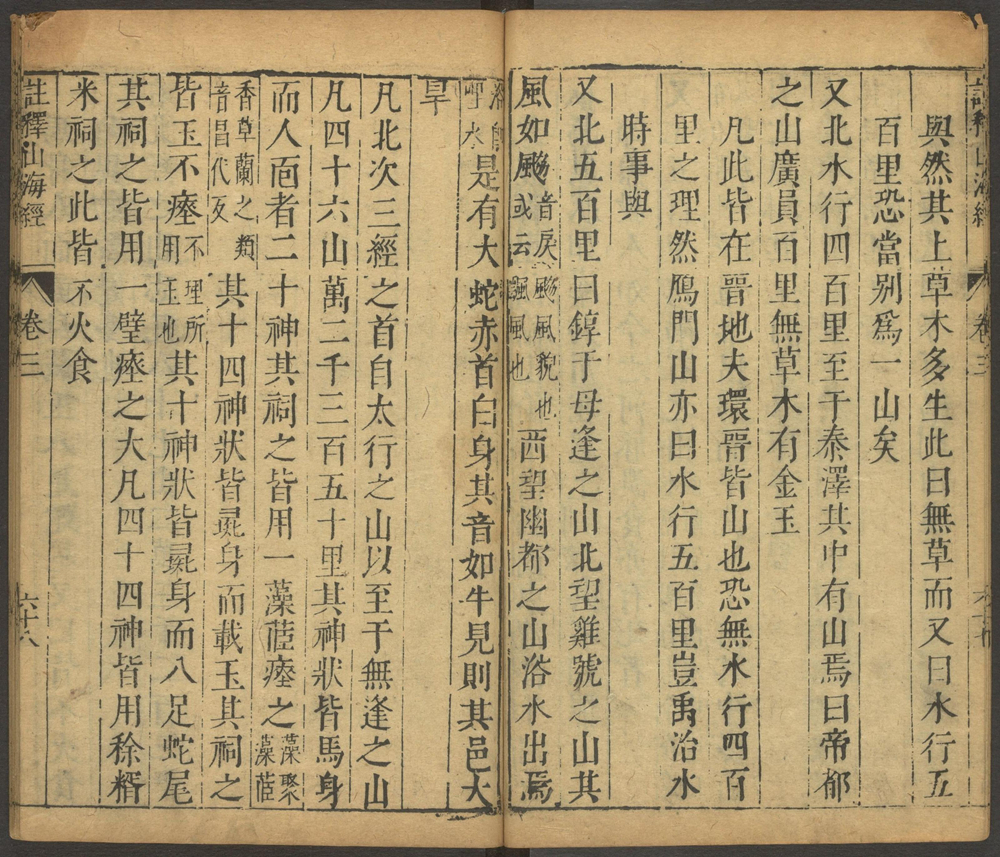 與然其上草木多生此曰無草而又曰水行五
百里恐當别為一山矣
又北水行四百里至于泰澤其中有山焉曰帝都
之山廣員百里無草木有金玉
凡此皆在晉地夫環晉皆山也恐無水行四百
里之理然鴈門山亦曰水行五百里豈禹治水
時事與
又北五百里曰錞于毋逢之山北望雞號之山其
風如颷音戾或云颷風貌也飄風也西望幽都之山浴水出焉
水是有大蛇赤首白身其音如牛見則其邑大
旱
凡北次三經之首自太行之山以至于無逢之山
凡四十六山萬二千三百五十里其神狀皆馬身
而人面者二十神其祠之皆用一藻茝瘞之藻聚藻茝
香草蘭之類音昌代反其十四神狀皆彘身而載玉其祠之
皆玉不瘞不埋所用玉也其十神狀皆彘身而八足蛇尾
其祠之皆用一璧瘞之大凡四十四神皆用稌糈
米祠之此皆不火食
註釋山海經 卷三 六十八